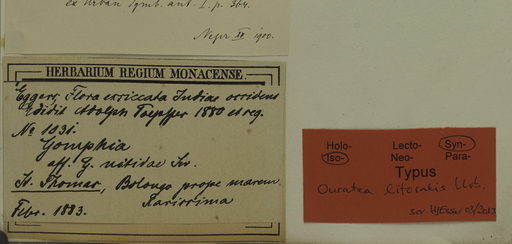 ex Urban Symb. ant. I. p. 364.
Nepr. XI 1900.
HERBARIUM REGIUM MONACENSE.
Eggers, Flora exsiccata Indiae occident
Edidit Adolph Toepffer 1880 et seq.
No 1031.
Gomphia
aff. G. nitidae Sw.
St. Thomas, Bolongo prope marem
Rarissima
Febr. 1883.
Holo- Lecto- Syn-
Iso- Neo- Para-
Typus
Ouratea litoralis Urb.
03/2013